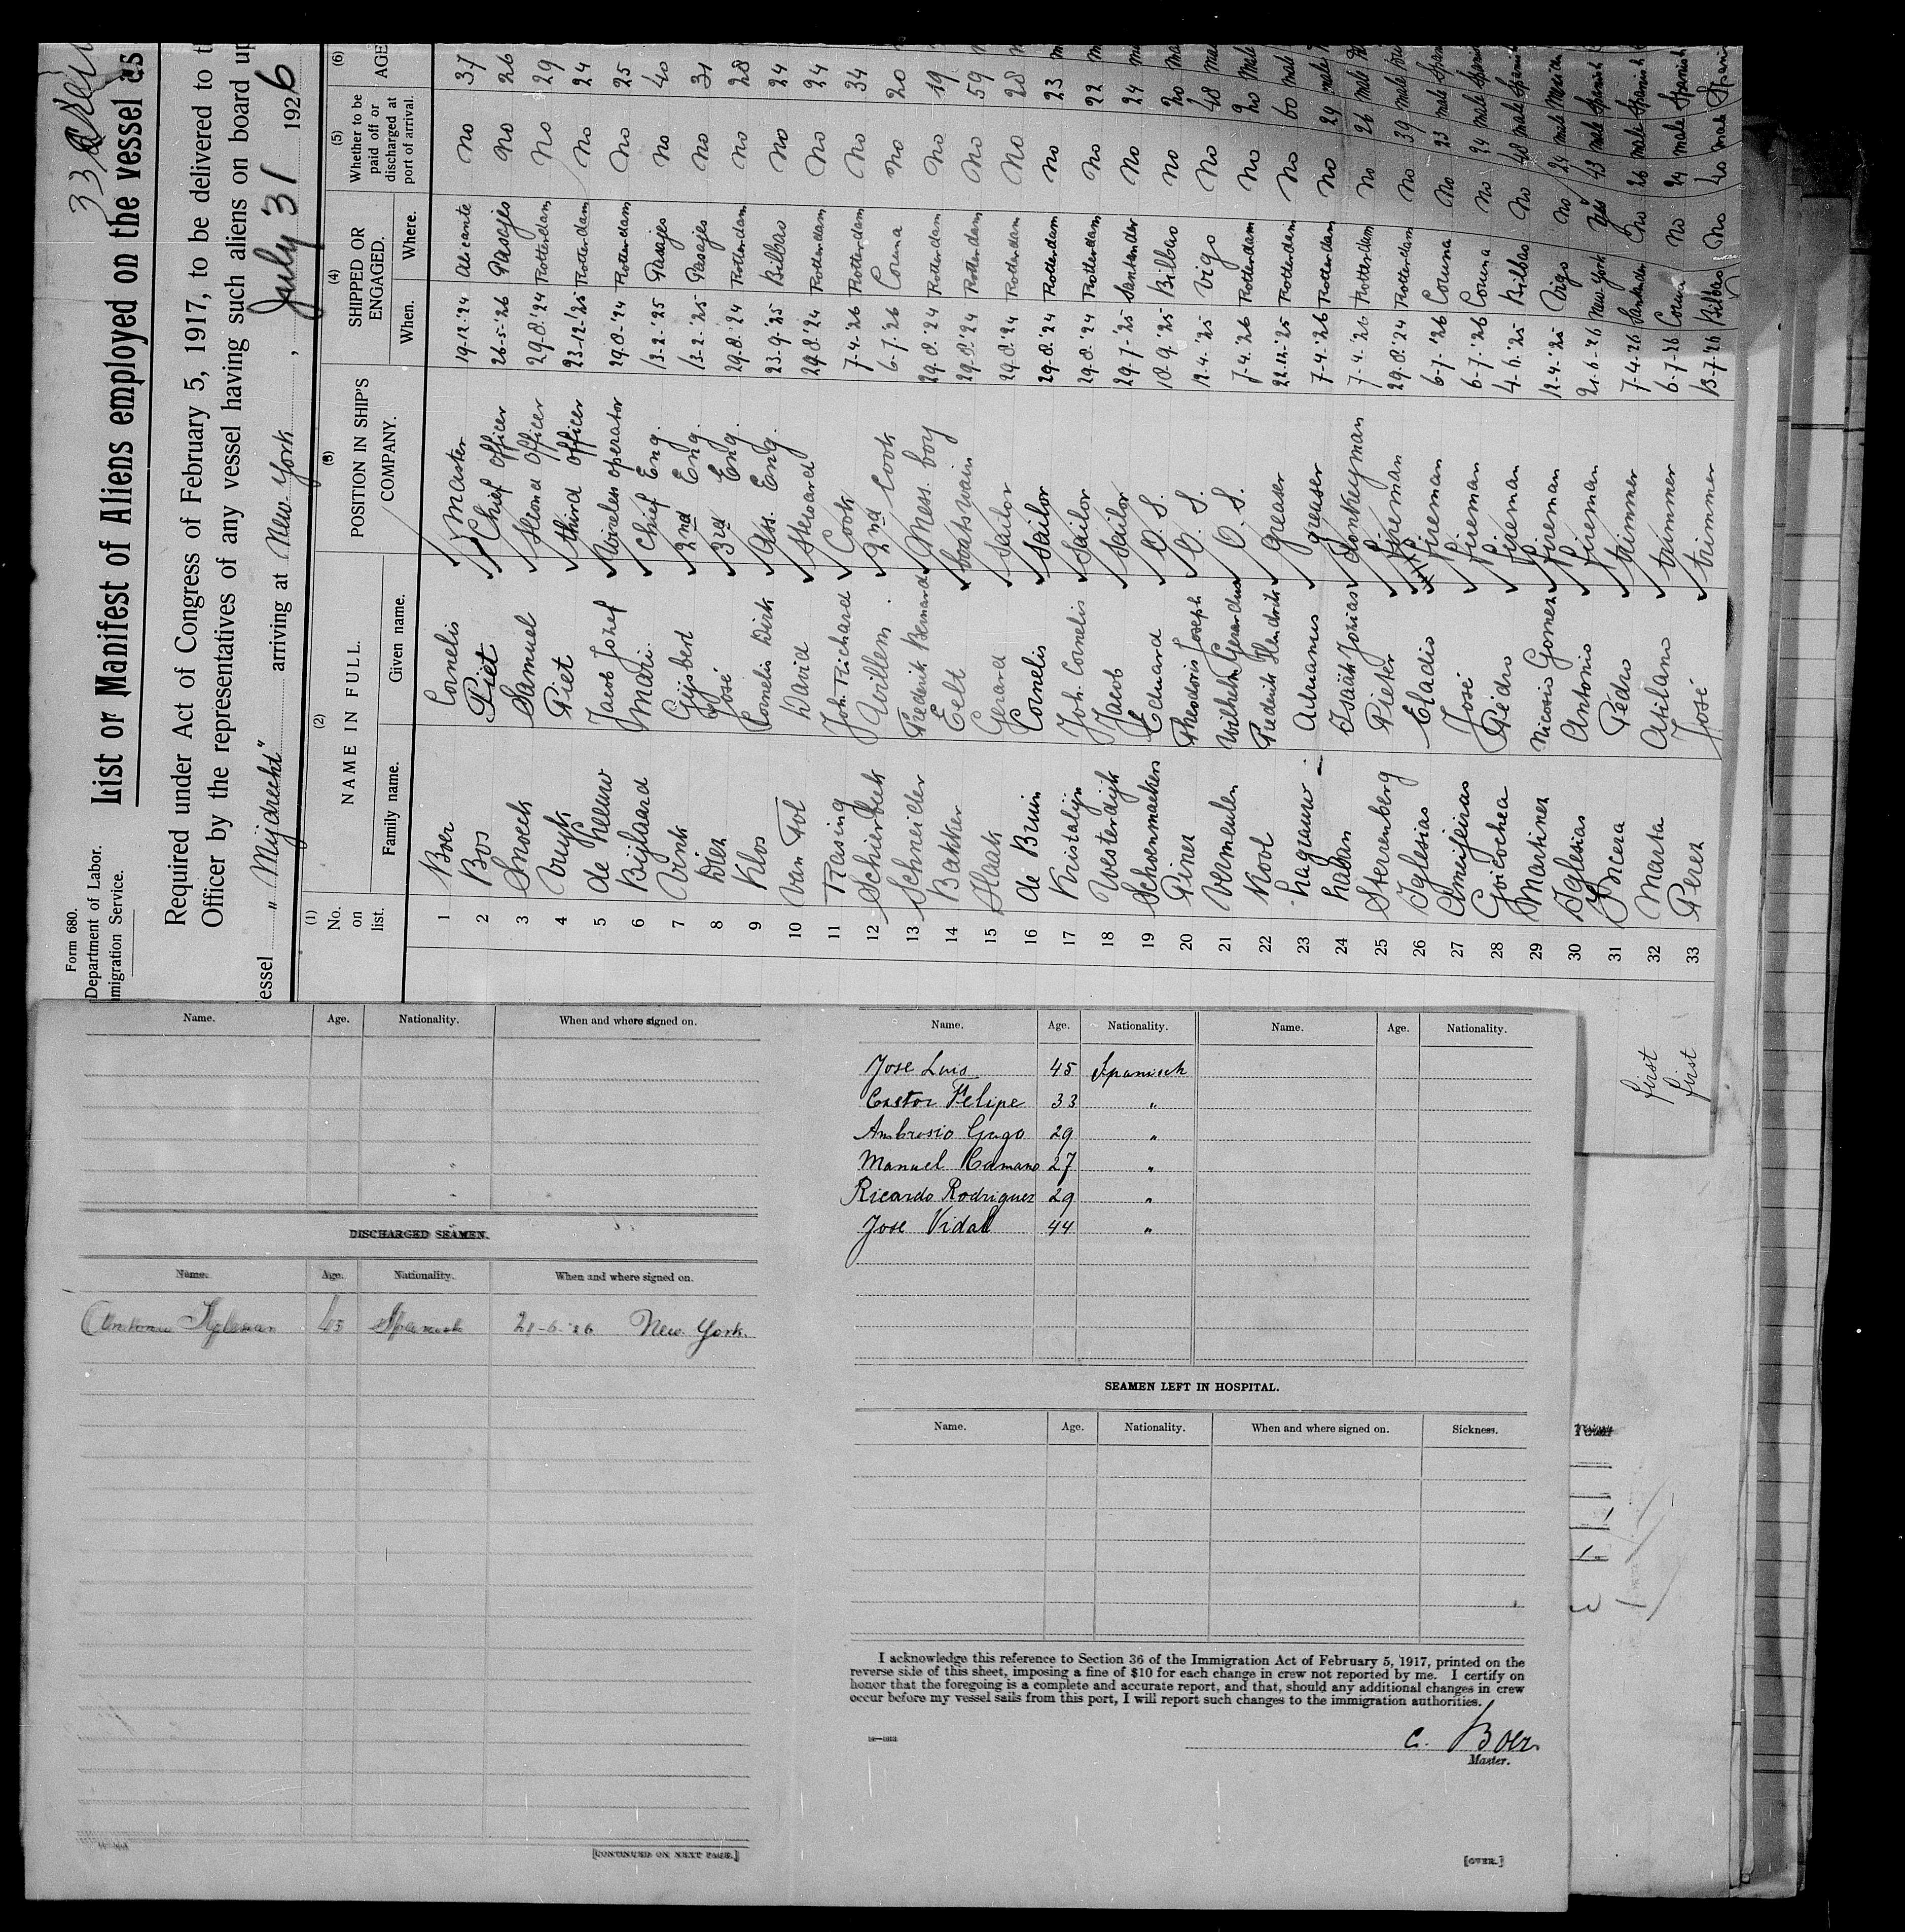 33
Form 680.
Department of Labor.
migration Service.
List or Manifest of Aliens employed on the vessel as
Required under Act of Congress of February 5, 1917, to be delivered to t
Officer by the representatives of any vessel having such aliens on board up
essel "Mijdrecht" arriving at New York, July 31 1926
(1) (2) (3) (4) (5) (6)
No. on list. NAME IN FULL. POSITION IN SHIP'S COMPANY. SHIPPED OR ENGAGED. Whether to be paid off or discharged at port of arrival. AGE
Family name. Given name. When. Where.
1 Boer Cornelis Master 19-12-'24 Alicante No 37
2 Bos Piet Chief Officer 26-5-'26 Pasajes No 26
3 Snoeck Samuel Second Officer 29-8-'24 Rotterdam No 29
4 Vuyk Piet third Officer 23-12-'25 Rotterdam No 24
5 de Leeuw Jacob Jozef Wireless operator 29-8-'24 Rotterdam No 25
6 Bijlaard Mari Chief Eng. 13-2-'25 Pasajes No 40
7 Vink Gijsbert 2nd Eng. 13-2-'25 Pasajes No 31
8 Diez José 3rd Eng. 29-8-'24 Rotterdam No 28
9 Klos Cornelis Dirk Ass. Eng. 23-9-'25 Bilbao No 24
10 van Tol David Steward 29-8-'24 Rotterdam No 24
11 Rasing Joh. Richard Cook 7-4-'26 Rotterdam No 34
12 Schierbeek Willem 2nd Cook 6-7-'26 Coruna No 20
13 Schneider Frederik Bernard Mess. boy 29-8-'24 Rotterdam No 19
14 Bakker Eelt boatswain 29-8-'24 Rotterdam No 59
15 Haak Gerard Sailor 29-8-'24 Rotterdam No 28
16 de Bruin Cornelis Sailor 29-8-'24 Rotterdam No 23
17 Kristalijn Joh. Cornelis Sailor 29-8-'24 Rotterdam No 22
18 Westerdijk Jacob Sailor 29-7-'25 Santander No 24
19 Schoenmaekers Eduard O. S. 18-9-'25 Bilbao No 20
20 Pinex Theodoris Joseph O. S. 12-4-'25 Vigo No 48
21 Vermeulen Wilhelm Gerardus O. S. 7-4-'26 Rotterdam No 20 Male
22 Kool Frederik Hendrik Greaser 22-12-'25 Rotterdam No 60 male
23 Lagrauw Adrianus Greaser 7-4-'26 Rotterdam No 29 male
24 Laban Isaäk Jozias donkeyman 7-4-'26 Rotterdam No 26 male
25 Sterrenberg Pieter fireman 29-8-'24 Rotterdam No 39 male
26 Iglesias Eladio fireman 6-7-'26 Coruna No 23 male Spani
27 Ameijeiras José fireman 6-7-'26 Coruna No 24 male Spani
28 Goicochea Piedro fireman 4-6-'25 Bilbao No 48 male Spani
29 Martinez Nicosio Gomez fireman 12-4-'25 Vigo No 24 male
30 Iglesias Antonio fireman 21-6-26 New York Yes 43 male Spanish
31 Pedro trimmer 7-4-26 Santander No 26 male Spanish
32 Marta Atilano trimmer 6-7-26 Corun No 24 male Spanish
33 Perez José trimmer 13-7-26 Bilbao No 40 male Spani
first
first
Name. Age. Nationality. When and where signed on.
DISCHARGED SEAMEN.
Name. Age. Nationality. When and where signed on.
Antonio Iglesias 43 Spanish 21-6-'26 New York.
16—1013
[CONTINUED ON NEXT PAGE.]
Name. Age. Nationality. Name. Age. Nationality.
Jose Luis 45 Spanisch
Castor Felipe 33 "
Ambrosio Gago 29 "
Manuel Camano 27 "
Ricardo Rodriguez 29 "
Jose Vidal 44 "
SEAMEN LEFT IN HOSPITAL.
Name. Age. Nationality. When and where signed on. Sickness.
I acknowledge this reference to Section 36 of the Immigration Act of February 5, 1917, printed on the
reverse side of this sheet, imposing a fine of $10 for each change in crew not reported by me. I certify on
honor that the foregoing is a complete and accurate report, and that, should any additional changes in crew
occur before my vessel sails from this port, I will report such changes to the immigration authorities.
16—1013
C. Boer
Master.
[OVER.]